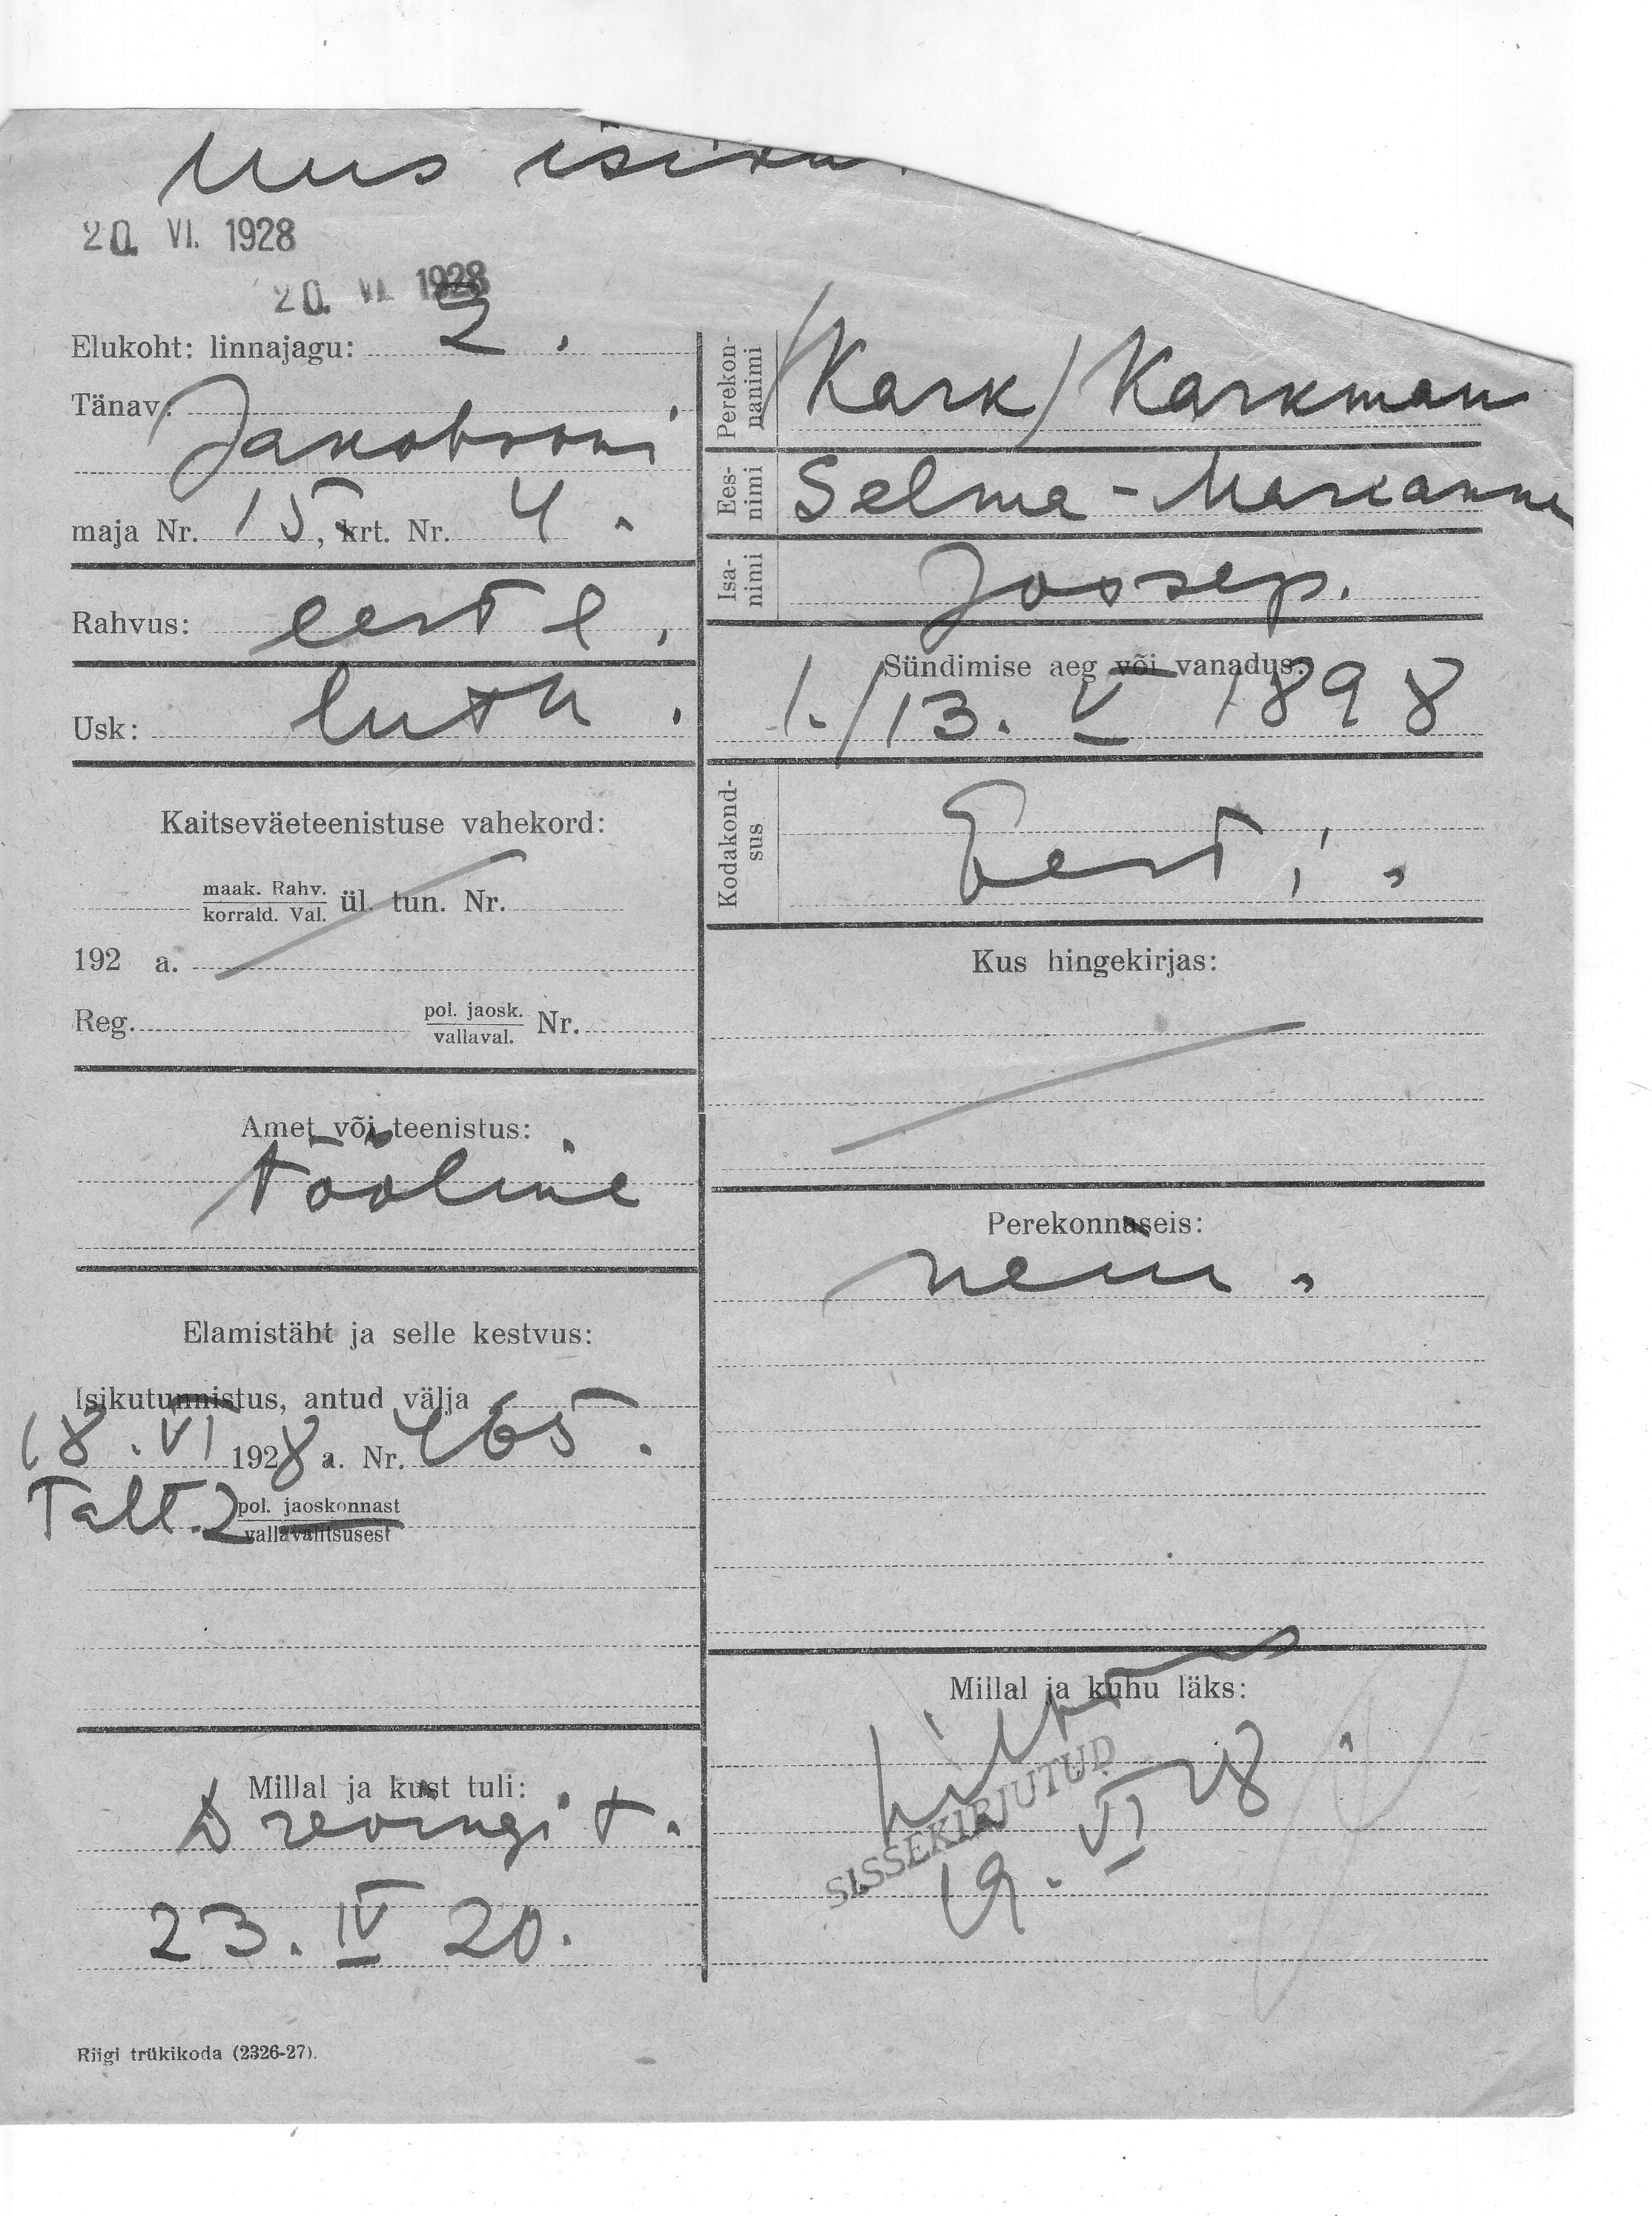 Uus isiku
20. VI. 1928
20. VI. 1928
Elukoht: linnajagu: 2.
Tänav: Jakobsoni
maja Nr. 15, krt. Nr. 4.
Rahvus: eestl.
Usk: luth.
Kaitseväeteenistuse vahekord:
maak. Rahv.
korrald. Val. ül. tun. Nr.
192 a.
Reg. pol. jaosk.
vallaval. Nr.
Amet või teenistus:
tööline
Elamistäht ja selle kestvus:
Isikutunnistus, antud välja
18. VI 1928 a. Nr. 465.
Talt. 2 pol. jaoskonnast
vallavalitsusest
Millal ja kust tuli:
23. IV 20.
Riigi trükikoda (2326-27).
Perekonnanimi /Kark/ Karkman
Eesnimi Selma-Marianne
Isanimi Joosep.
Sündimise aeg või vanadus:
1./13. V 1898
Kodakondsus Eesti.
Kus hingekirjas:
Perekonnaseis:
neiu.
Millal ja kuhu läks:
SISSEKIRJUTUD
19. VI 28.